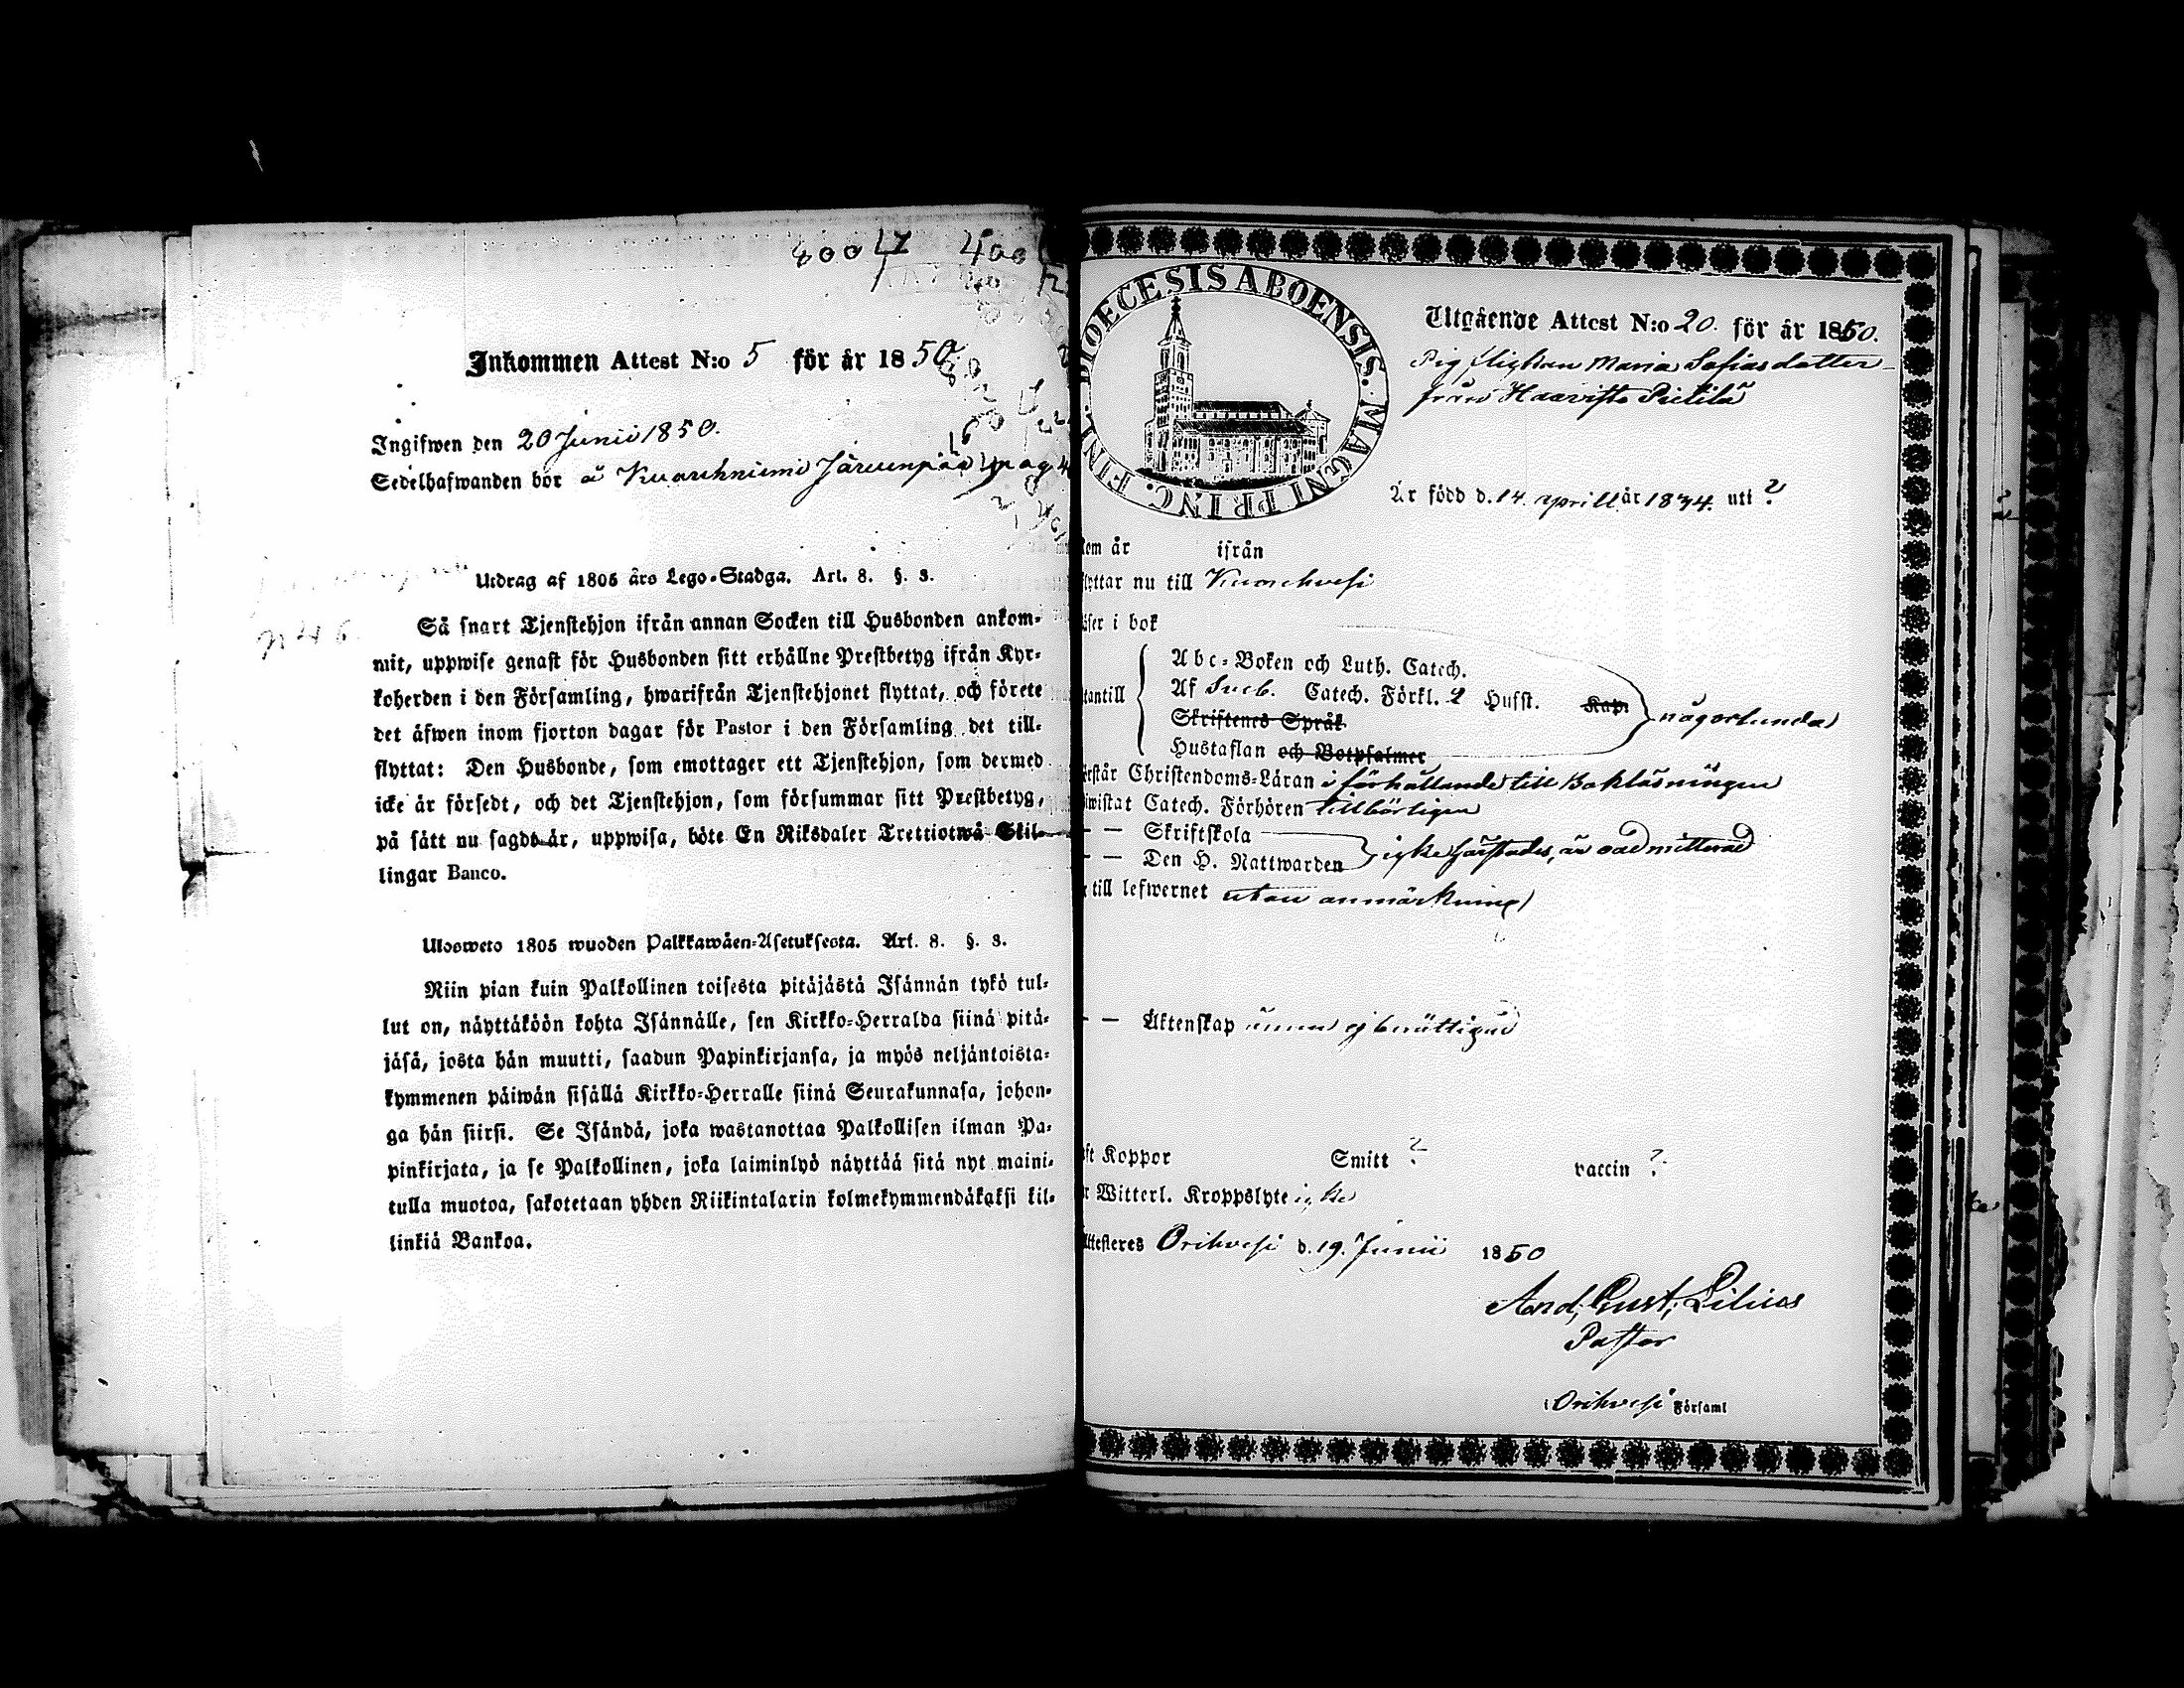 Inkommen Attest N:o 5 för år 1850.
Ingifwen den 20 Junii 1850.
Sedelhafwanden bor å Kuorehniemi Järvenpää pag 4
Utdrag af 1805 års Lego-Stadga. Art. 8. §. 3.
Så snart Tjenstehjon ifrån annan Socken till Husbonden ankom-
mit, uppwise genast för Husbonden sitt erhållne Prestbetyg ifrån Kyr-
koherden i den Församling, hwarifrån Tjenstehjonet flyttat, och förete
det äfwen inom fjorton dagar för Pastor i den Församling det till-
flyttat: Den Husbonde, som emottager ett Tjenstehjon, som dermed
icke är försedt, och det Tjenstehjon, som försummar sitt Prestbetyg,
på sätt nu sagdt är, uppwisa, böte En Riksdaler Trettiotwå Skil-
lingar Banco.
Ulosweto 1805 wuoden Palkkawäen-Asetuksesta. Art. 8. §. 3.
Niin pian kuin Palkollinen toisesta pitäjästä Isännän tykö tul-
lut on, näyttäköön kohta Isännälle, sen Kirkko-Herralda siinä pitä-
jäsä, josta hän muutti, saadun Papinkirjansa, ja myös neljäntoista-
kymmenen päiwän sisällä Kirkko-Herralle siinä Seurakunnasa, johon-
ga hän siirsi. Se Isändä, joka wastanottaa Palkollisen ilman Pa-
pinkirjata, ja se Palkollinen, joka laiminlyö näyttää sitä nyt maini-
tulla muotoa, sakotetaan yhden Riikintalarin kolmekymmendäkaksi kil-
linkiä Bankoa.
DIOECESIS ABOENSIS. MAGNI PRINC. FINL.
Utgående Attest N:o 20. för år 1850.
Pig flickan Maria Sofiasdotter
från Haavisto Pietilä
Är född d. 14 aprill år 1834. uti ?
kom år ifrån
flyttar nu till Kuorehvesi
läser i bok
utantill
Abc-Boken och Luth. Catech.
Af Sveb. Catech. Förkl. 2 Hufst. Kap.
Skriftenes Språk
Hustaflan och Botpsalmer
någorlunda
förstår Christendoms-Läran i förhållande till Bokläsningen
bewistat Catech. Förhören tillbörligen
— — Skriftskola
— — Den H. Nattwarden
icke
till lefwernet utan anmärkning
— — Äktenskap ännu ej berättigad
haft Koppor Smitt ? vaccin ?
Witterl. Kroppslyte icke
Attesteres Orihvesi d. 19. Junii 1850
And. Gust. Lilius
Pastor
i Orihvesi Församl